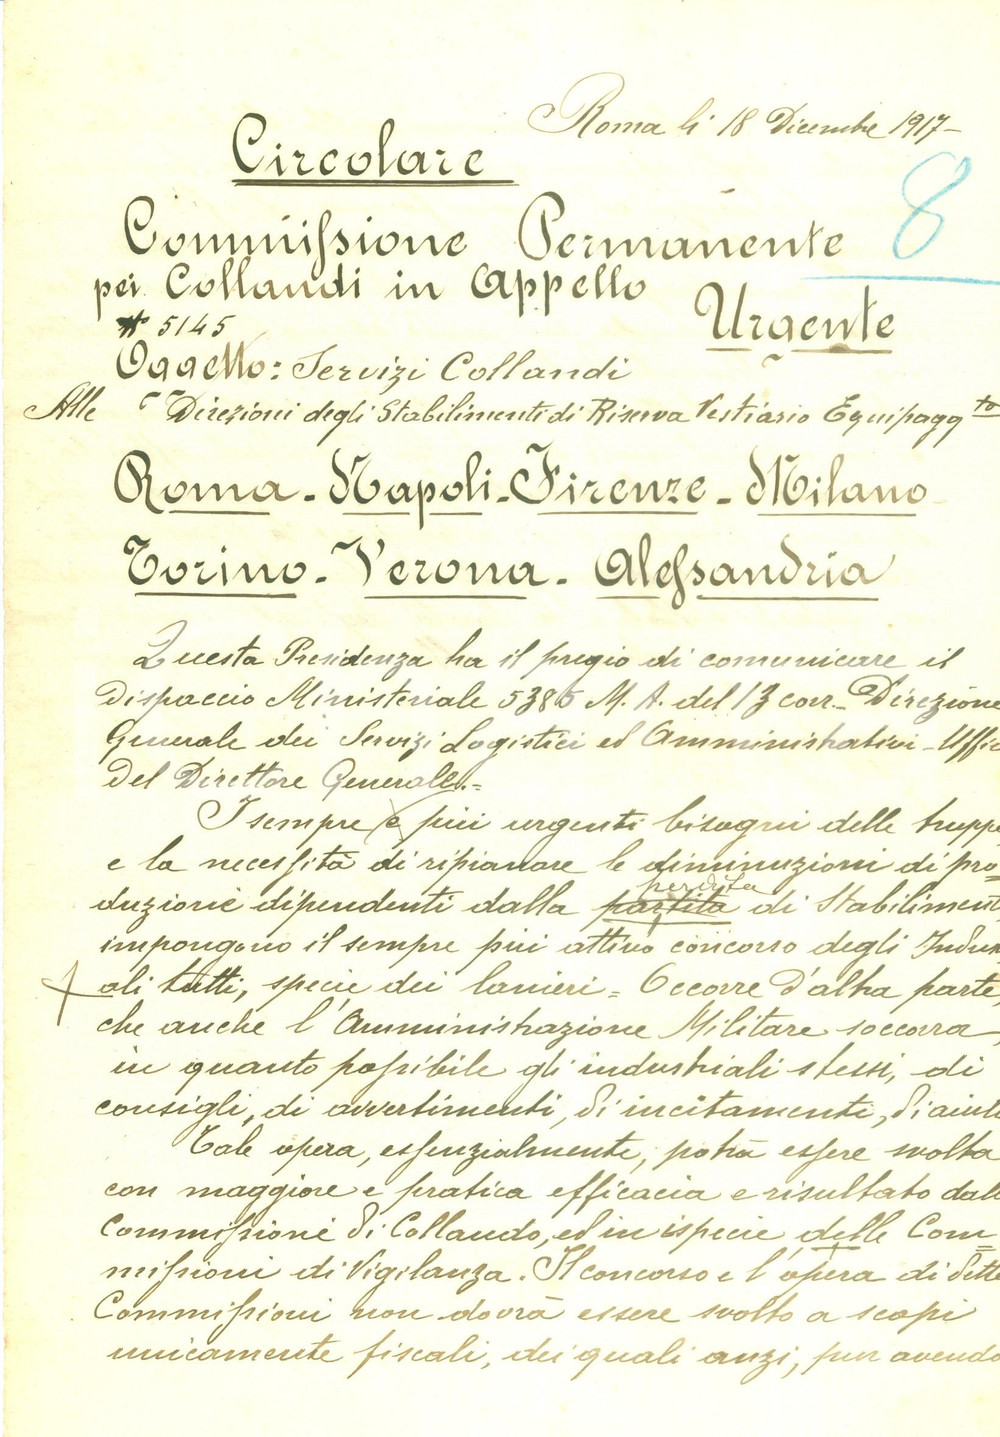 Roma li 18 Dicembre 1917-
Circolare
8
Commissione Permanente
pei Collaudi in Appello
Urgente
5145
Oggetto: Servizi Collaudi
Alle Direzioni degli Stabilimenti di Riserva Vestiario Equipagg.to
Roma - Napoli - Firenze - Milano
Torino - Verona - Alessandria
Questa Presidenza ha il pregio di comunicare il
Dispaccio Ministeriale 5385 M. A. del 13 corr. Direzione
Generale dei Servizi Logistici ed Amministrativi - Uffic
del Direttore Generale.=
I sempre e più urgenti bisogni delle truppe
e la necessità di ripianare le diminuzioni di pro=
duzione dipendenti dalla partita perdita di Stabilimenti
impongono il sempre più attivo concorso degli Indus
ali tutti, specie dei lanieri = Occorre d'altra parte,
che anche l'Amministrazione Militare soccorra,
in quanto possibile gli industriali stessi, di
consigli, di avvertimenti, di incitamenti, di aiuti
Tale opera, essenzialmente, potrà essere svolta
con maggiore e pratica efficacia e risultato dalle
Commissioni di Collaudo, ed in ispecie delle Com=
missioni di Vigilanza. Il concorso e l'opera di dette
Commissioni non dovrà essere svolto a scopi
unicamente fiscali, dei quali anzi, pur avendo